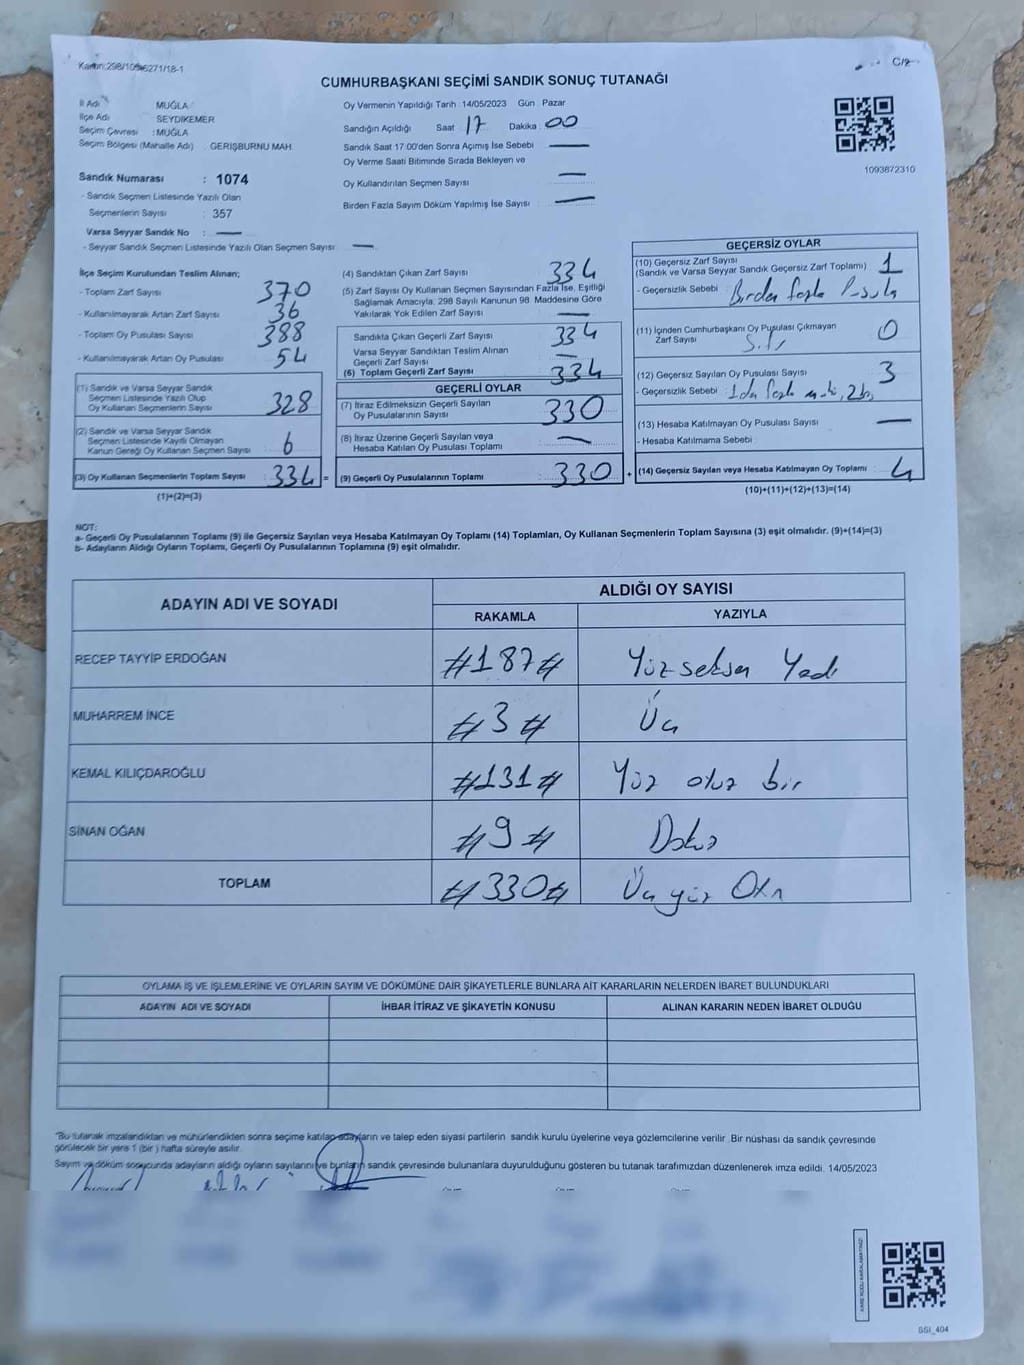 Kanun:298/105-6271/18-1
C/2
CUMHURBAŞKANI SEÇİMİ SANDIK SONUÇ TUTANAĞI
İl Adı MUĞLA
İlçe Adı SEYDİKEMER
Seçim Çevresi : MUĞLA
Seçim Bölgesi (Mahalle Adı) GERİŞBURNU MAH.
Sandık Numarası : 1074
- Sandık Seçmen Listesinde Yazılı Olan
Seçmenlerin Sayısı : 357
Varsa Seyyar Sandık No : —
- Seyyar Sandık Seçmen Listesinde Yazılı Olan Seçmen Sayısı : —
Oy Vermenin Yapıldığı Tarih : 14/05/2023 Gün Pazar
Sandığın Açıldığı Saat 17 Dakika : 00
Sandık Saat 17:00'den Sonra Açımış İse Sebebi —
Oy Verme Saati Bitiminde Sırada Bekleyen ve
Oy Kullandırılan Seçmen Sayısı —
Birden Fazla Sayım Döküm Yapılmış İse Sayısı —
1093872310
İlçe Seçim Kurulundan Teslim Alınan;
- Toplam Zarf Sayısı 370
- Kullanılmayarak Artan Zarf Sayısı 36
- Toplam Oy Pusulası Sayısı 388
- Kullanılmayarak Artan Oy Pusulası 54
(1) Sandık ve Varsa Seyyar Sandık
Seçmen Listesinde Yazılı Olup
Oy Kullanan Seçmenlerin Sayısı 328
(2) Sandık ve Varsa Seyyar Sandık
Seçmen Listesinde Kayıtlı Olmayan
Kanun Gereği Oy Kullanan Seçmen Sayısı 6
(3) Oy Kullanan Seçmenlerin Toplam Sayısı 334 =
(1)+(2)=(3)
(4) Sandıktan Çıkan Zarf Sayısı 334
(5) Zarf Sayısı Oy Kullanan Seçmen Sayısından Fazla İse, Eşitliği
Sağlamak Amacıyla, 298 Sayılı Kanunun 98. Maddesine Göre
Yakılarak Yok Edilen Zarf Sayısı —
Sandıkta Çıkan Geçerli Zarf Sayısı 334
Varsa Seyyar Sandıktan Teslim Alınan
Geçerli Zarf Sayısı —
(6) Toplam Geçerli Zarf Sayısı 334
GEÇERLİ OYLAR
(7) İtiraz Edilmeksizin Geçerli Sayılan
Oy Pusulalarının Sayısı 330
(8) İtiraz Üzerine Geçerli Sayılan veya
Hesaba Katılan Oy Pusulası Toplamı —
(9) Geçerli Oy Pusulalarının Toplamı 330 +
GEÇERSİZ OYLAR
(10) Geçersiz Zarf Sayısı
(Sandık ve Varsa Seyyar Sandık Geçersiz Zarf Toplamı) 1
- Geçersizlik Sebebi : Birden fazla Pusula
(11) İçinden Cumhurbaşkanı Oy Pusulası Çıkmayan
Zarf Sayısı 0
(12) Geçersiz Sayılan Oy Pusulası Sayısı 3
- Geçersizlik Sebebi :
(13) Hesaba Katılmayan Oy Pusulası Sayısı —
- Hesaba Katılmama Sebebi
(14) Geçersiz Sayılan veya Hesaba Katılmayan Oy Toplamı 4
(10)+(11)+(12)+(13)=(14)
NOT:
a- Geçerli Oy Pusulalarının Toplamı (9) ile Geçersiz Sayılan veya Hesaba Katılmayan Oy Toplamı (14) Toplamları, Oy Kullanan Seçmenlerin Toplam Sayısına (3) eşit olmalıdır. (9)+(14)=(3)
b- Adayların Aldığı Oyların Toplamı, Geçerli Oy Pusulalarının Toplamına (9) eşit olmalıdır.
ADAYIN ADI VE SOYADI ALDIĞI OY SAYISI
RAKAMLA YAZIYLA
RECEP TAYYİP ERDOĞAN #187# Yüz seksen Yedi
MUHARREM İNCE #3# Üç
KEMAL KILIÇDAROĞLU #131# Yüz otuz bir
SİNAN OĞAN #9# Dokuz
TOPLAM #330# Üç yüz Otuz
OYLAMA İŞ VE İŞLEMLERİNE VE OYLARIN SAYIM VE DÖKÜMÜNE DAİR ŞİKAYETLERLE BUNLARA AİT KARARLARIN NELERDEN İBARET BULUNDUKLARI
ADAYIN ADI VE SOYADI İHBAR İTİRAZ VE ŞİKAYETİN KONUSU ALINAN KARARIN NEDEN İBARET OLDUĞU
"Bu tutanak imzalandıktan ve mühürlendikten sonra seçime katılan adayların ve talep eden siyasi partilerin sandık kurulu üyelerine veya gözlemcilerine verilir .Bir nüshası da sandık çevresinde
görülecek bir yere 1 (bir ) hafta süreyle asılır.
Sayım ve döküm sonucunda adayların aldığı oyların sayılarını ve bunların sandık çevresinde bulunanlara duyurulduğunu gösteren bu tutanak tarafımızdan düzenlenerek imza edildi. 14/05/2023
SSI_404